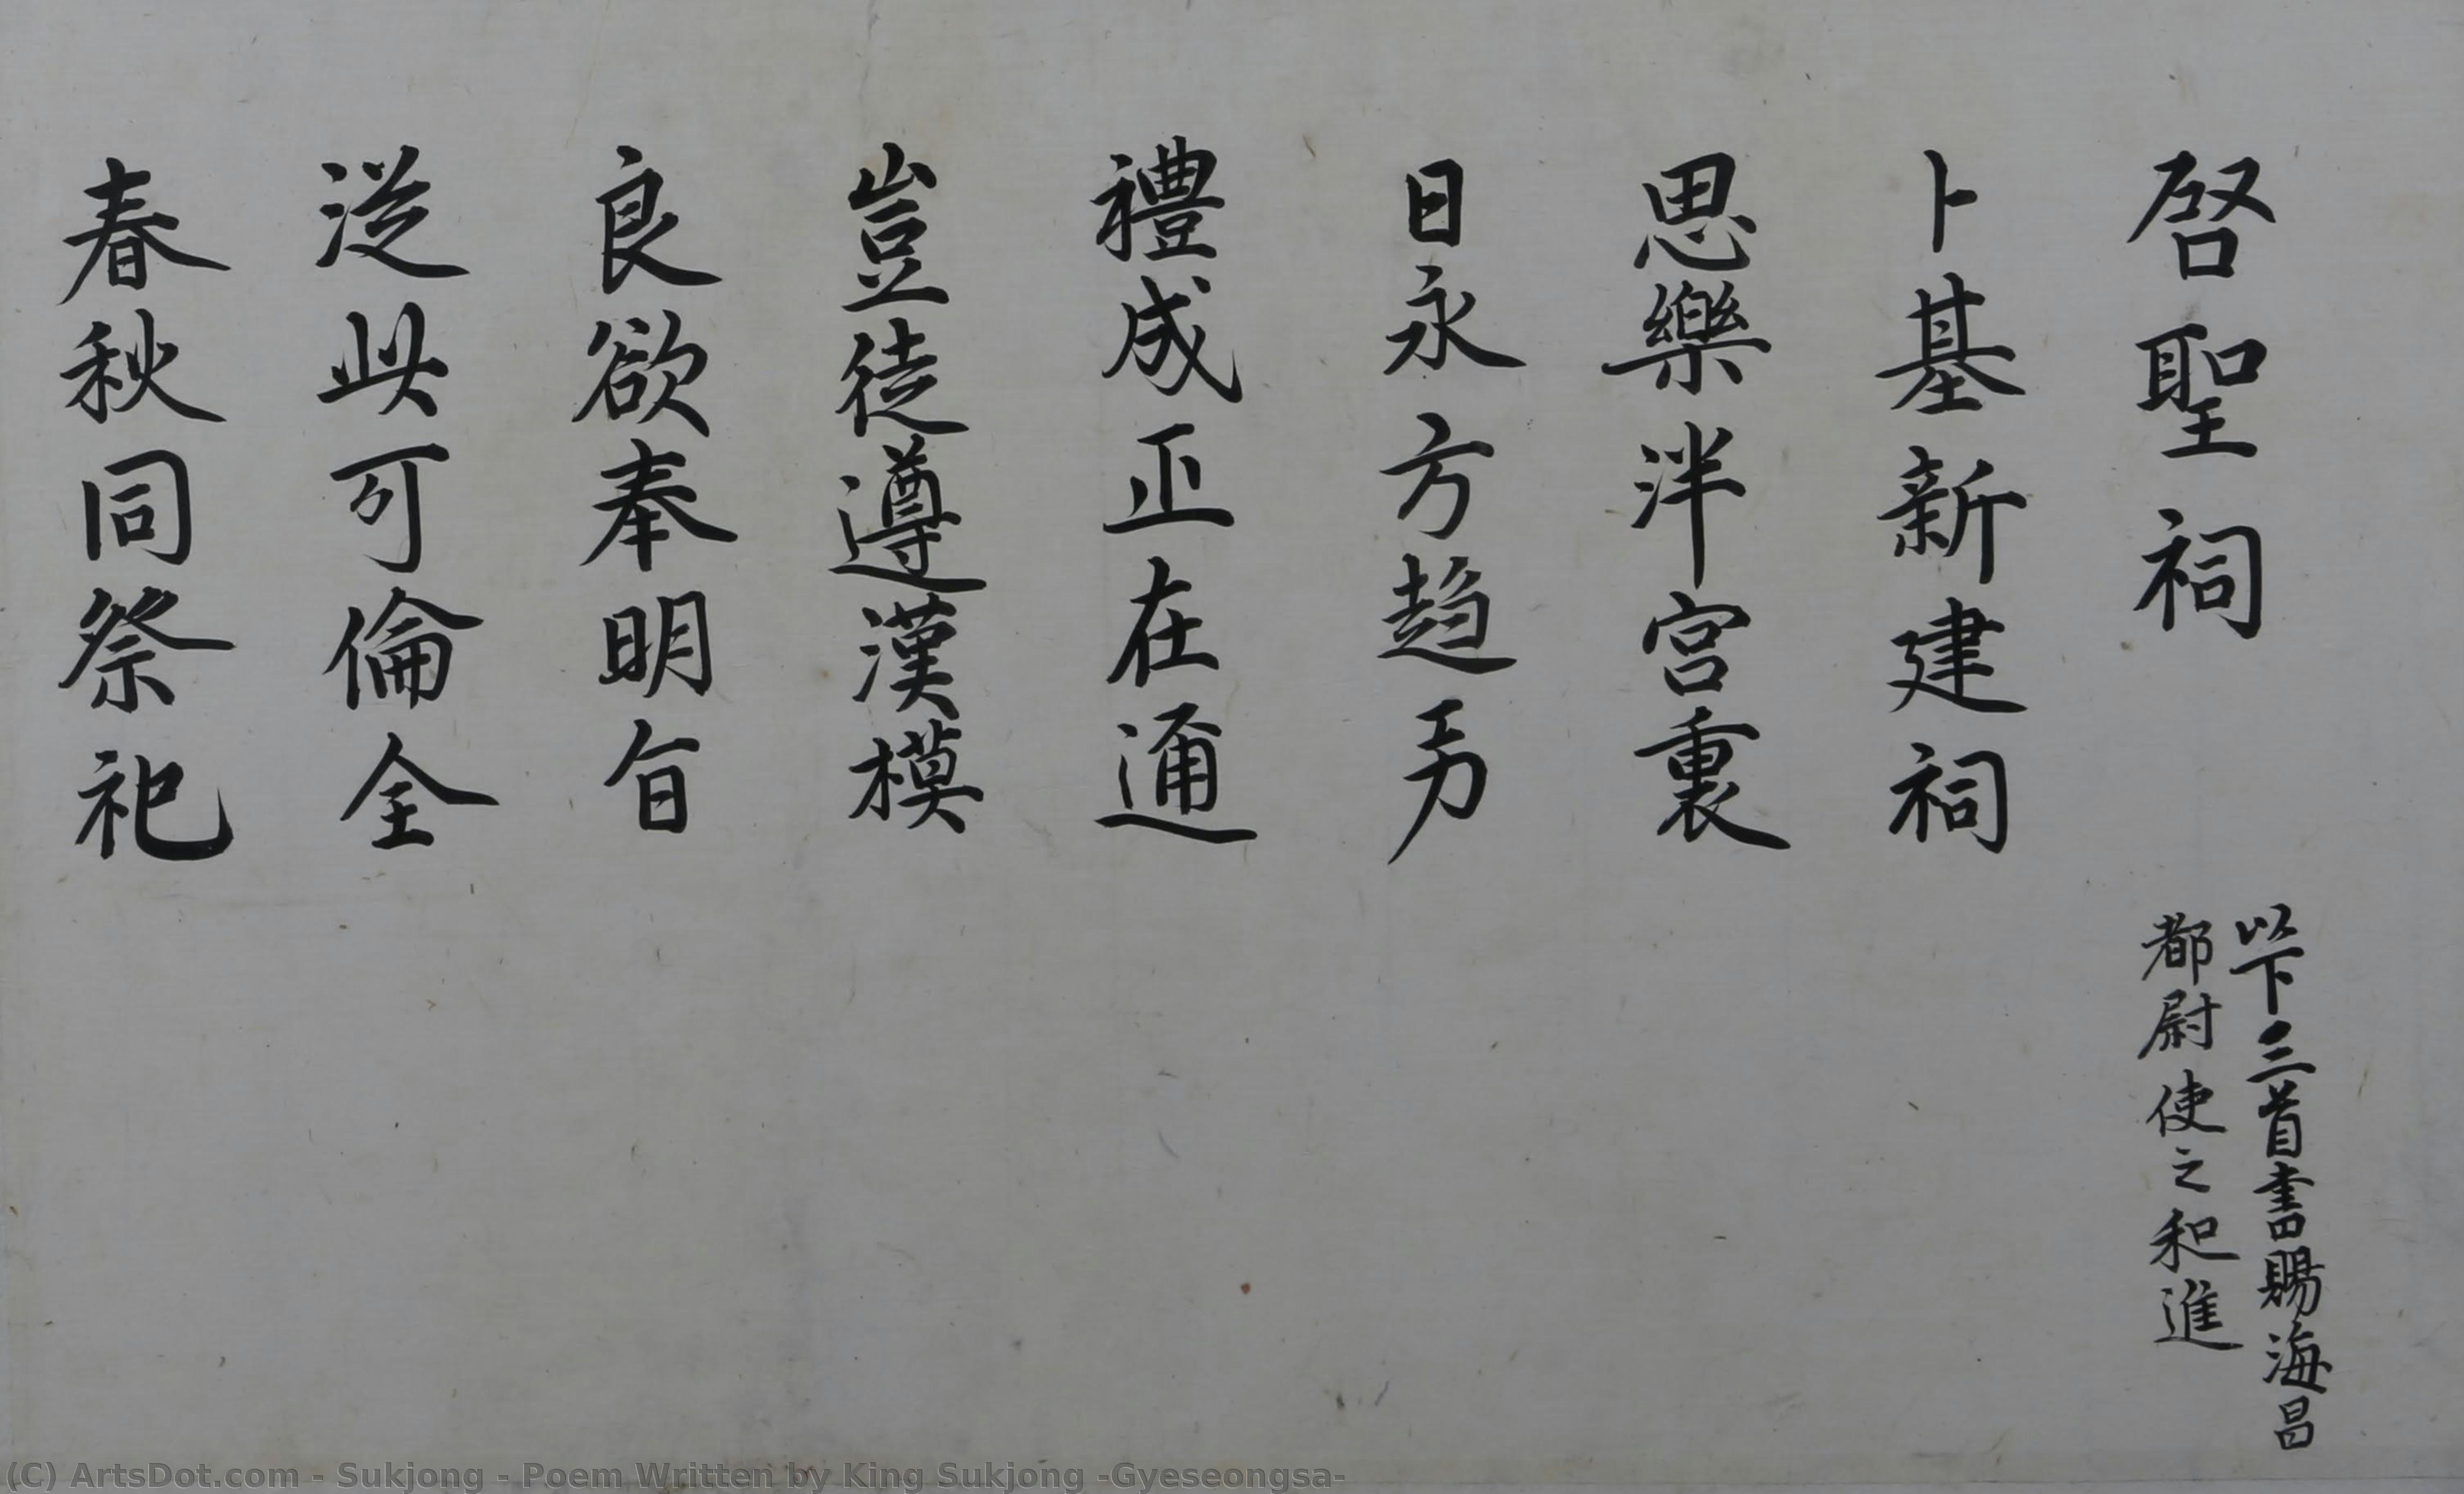 啓聖祠
以下三首書賜海昌
都尉使之和進
卜基新建祠
思樂泮宮裏
日永方趍
禮成正在通
豈徒遵漢模
良欲奉明旨
従此可倫全
春秋同祭祀
(C) ArtsDot.com - Sukjong - Poem Written by King Sukjong -Gyeseongsa-